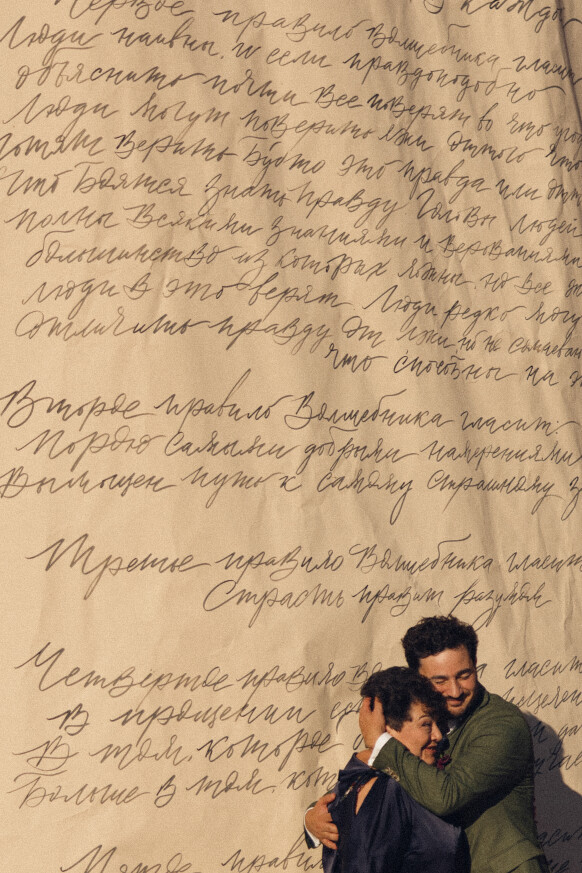 Первое правило Волшебника гласит
Люди наивны, и если правдоподобно
объяснить почти все поверят во что
Люди могут поверить лжи оттого что
хотят верить будто это правда или
что боятся знать правду Головы людей
полны всякими знаниями и верованиями
большинство из которых ложны, но все
люди в это верят Люди редко могут
отличить правду от лжи но не сомневаются
что способны на
Второе правило Волшебника гласит:
Порою самыми добрыми намерениями
вымощен путь к самому страшному
Третье правило Волшебника гласит
Страсть правит разумом
Четвертое правило гласит
В прощении
В том, которое
Больше в том,
правил